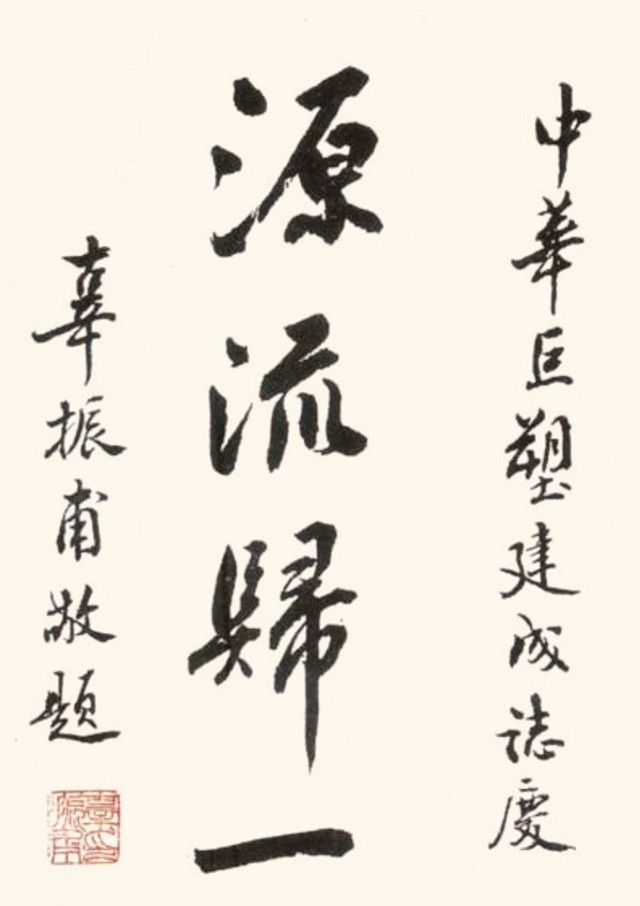 中華巨塑建成誌慶
源流歸一
辜振甫敬題